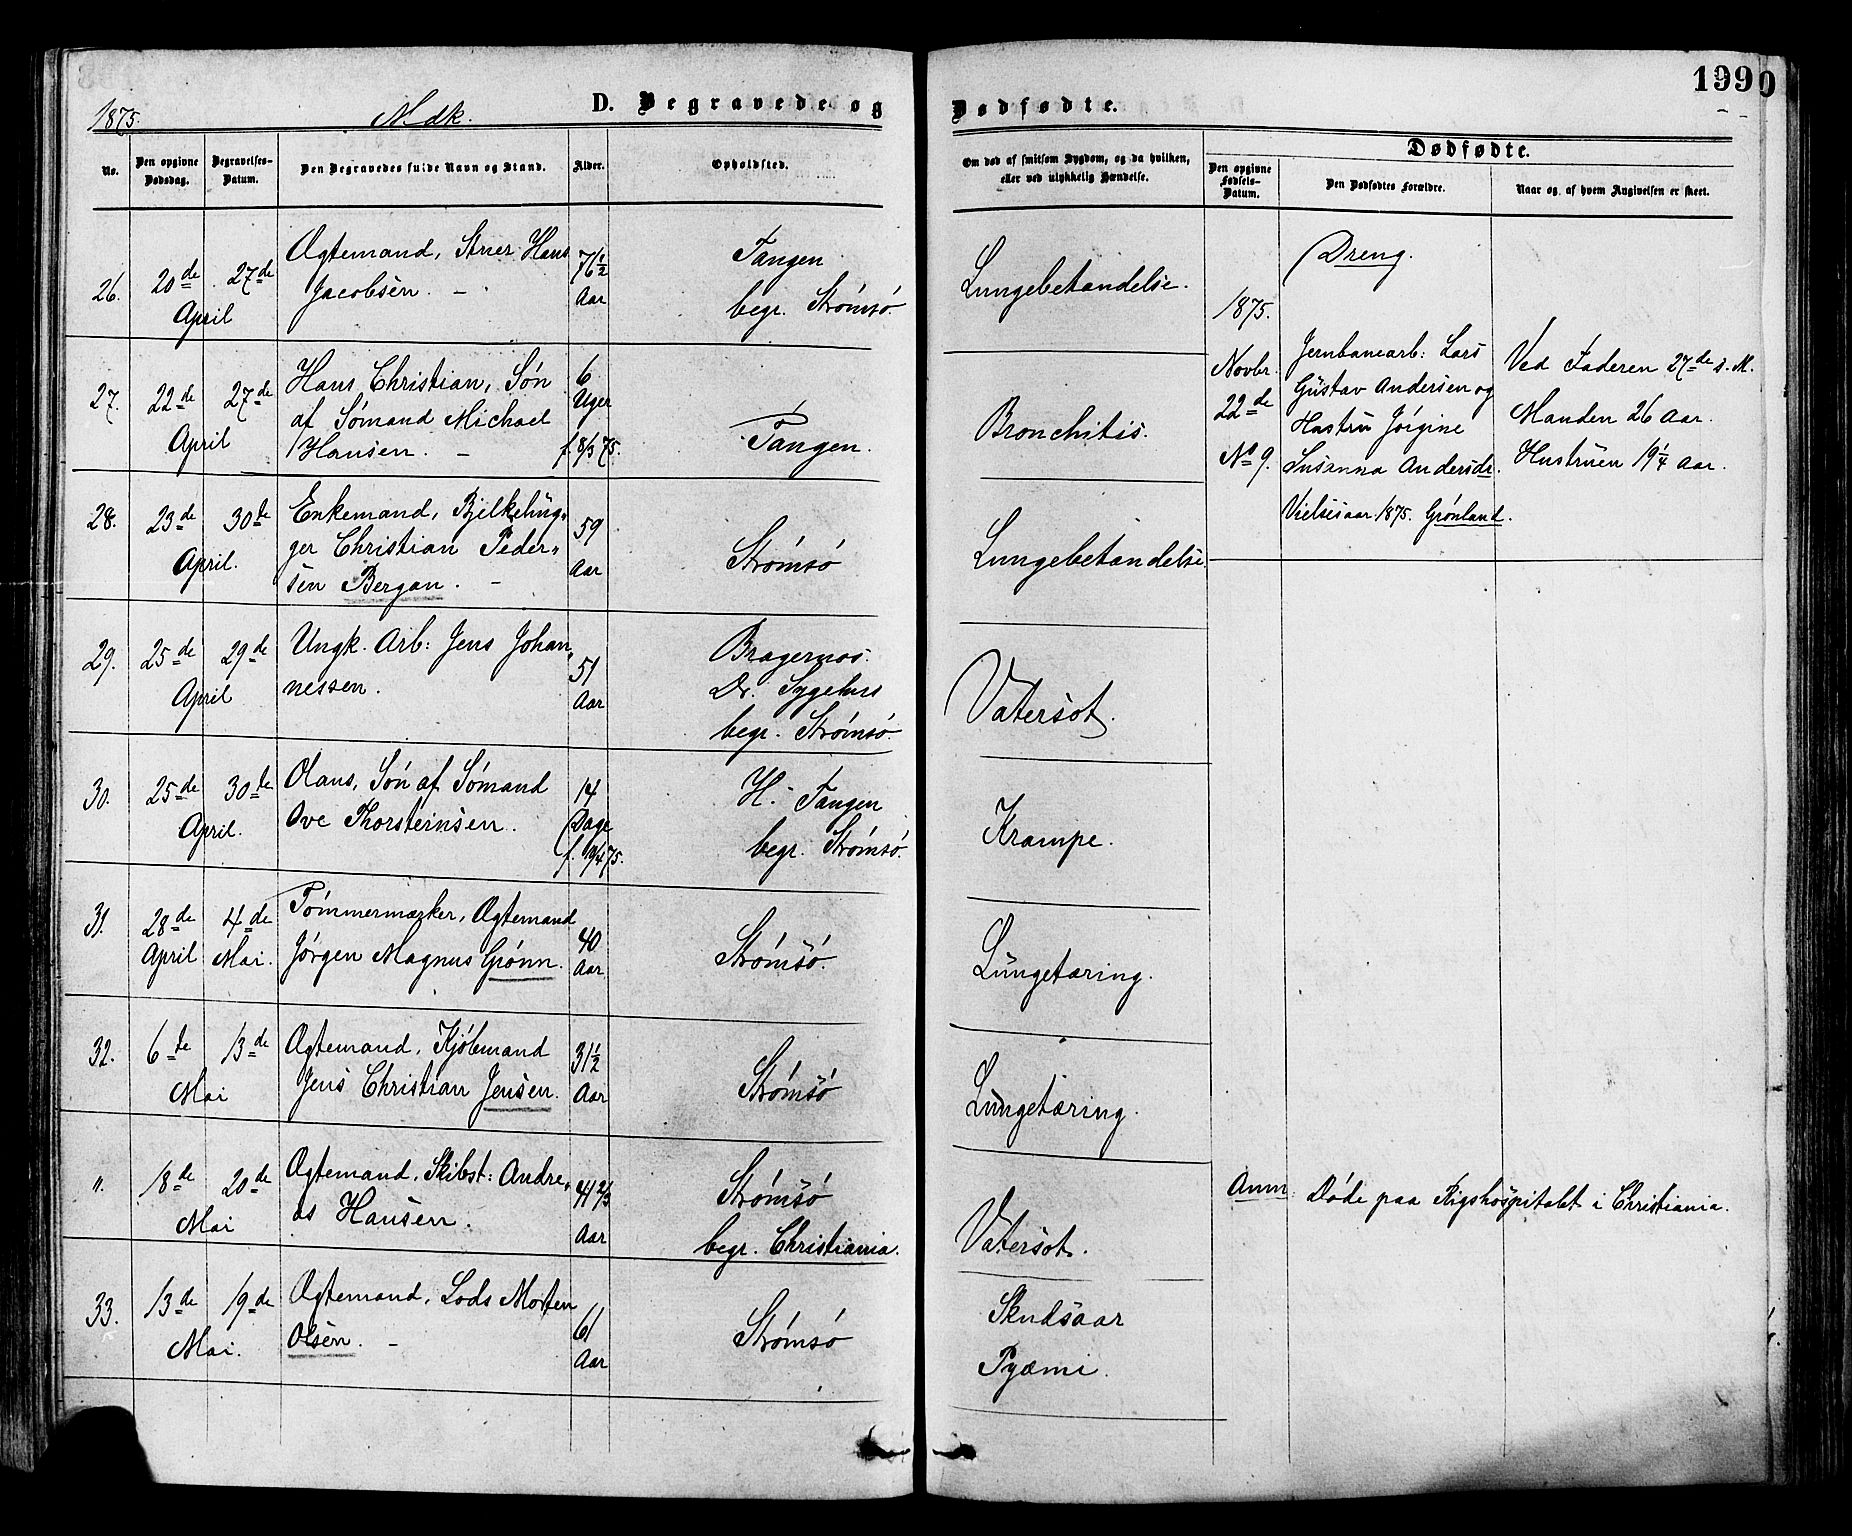 1990
1875. Mdk. D. Begravede og Dødfødte.
No. Den opgivne Dødsdag. Begravelses-Datum. Den Begravedes fulde Navn og Stand. Alder. Opholdsted. Om død af smitsom Sygdom, og da hvilken, eller ved ulykkelig Hændelse.
Dødfødte.
Den opgivne Fødsels-Datum. Den Dødfødtes Forældre. Naar og af hvem Angivelsen er skeet.
26. 20de April 27de
Ægtemand, Struer Hans
Jacobsen. –
76 1/2 Aar
Tangen
begr. Strømsö.
Lungebetændelse.
27. 22de April 27de
Hans Christian, Søn
af Sømand Michael
Hansen. –
6 Uger f. 8/3 75.
Tangen.
Bronchitis.
28. 23de April. 30te
Enkemand,
ger Christian Peder„
sen Bergan. –
59 Aar
Strømsö
Lungebetændelse
29. 25de April 29de
Ungk. Arb: Jens Johan„
nessen.
51 Aar
Bragernæs.
Dr. Sygehus
begr. Strømsö.
Vatersot.
30. 25de April. 30te
Olaus, Søn af Sømand
Ove Thorsteinsen.
14 Dage
H. Tangen
begr. Strømsö.
Krampe.
31. 28de April 4de Mai.
Tømmermærker, Ægtemand
Jørgen Magnus Grönn.
40 Aar
Strømsö.
Lungetæring.
32. 6te Mai 13de
Ægtemand, Kjøbmand
Jens Christian Jensen.
31 1/2 Aar
Strømsö
Lungetæring.
„. 18de Mai 20de
Ægtemand, Skibst: Andre„
as Hansen.
41 2/3 Aar
Strømsö
begr. Christiania.
Vatersot.
Anm: Døde paa Rigshospitalet i Christiania.
33. 13de Mai. 19de
Ægtemand, Lods Morten
Olsen. –
61 Aar
Strømsö
Skudsaar
Pyæmi.
Dreng.
1875.
Novbr.
22de
No 9.
Jernbanearb: Lars
Gustav Andersen og
Hustru Jørgine
Susanna Andersdr.
Vielsesaar 1875. Grønland.
Ved Faderen 27de s. M.
Manden 26 Aar.
Hustruen 19 1/4 Aar.